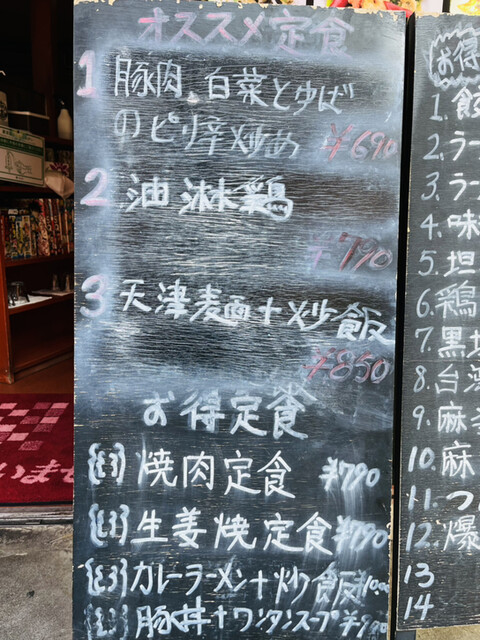 オススメ定食
1 豚肉、白菜とゆば
のピリ辛炒め ¥690
2 油淋鶏
¥790
3 天津麦面+炒飯
¥850
お得定食
焼肉定食 ¥790
生姜焼定食 ¥790
カレーラーメン+炒飯
豚丼+ワンタンスープ
お得
1.
2. ラー
3. ラー
4. 味
5. 坦
6. 鶏
7. 黒
8. 台湾
9. 麻
10. 麻
11. つ
12. 爆
13
14